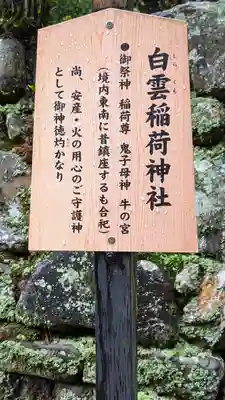 白雲稲荷神社
しらくも
●御祭神 稲荷尊 鬼子母神 牛の宮
(境内東南に昔鎮座するも合祀)
尚、安産・火の用心のご守護神
として御神徳灼かなり